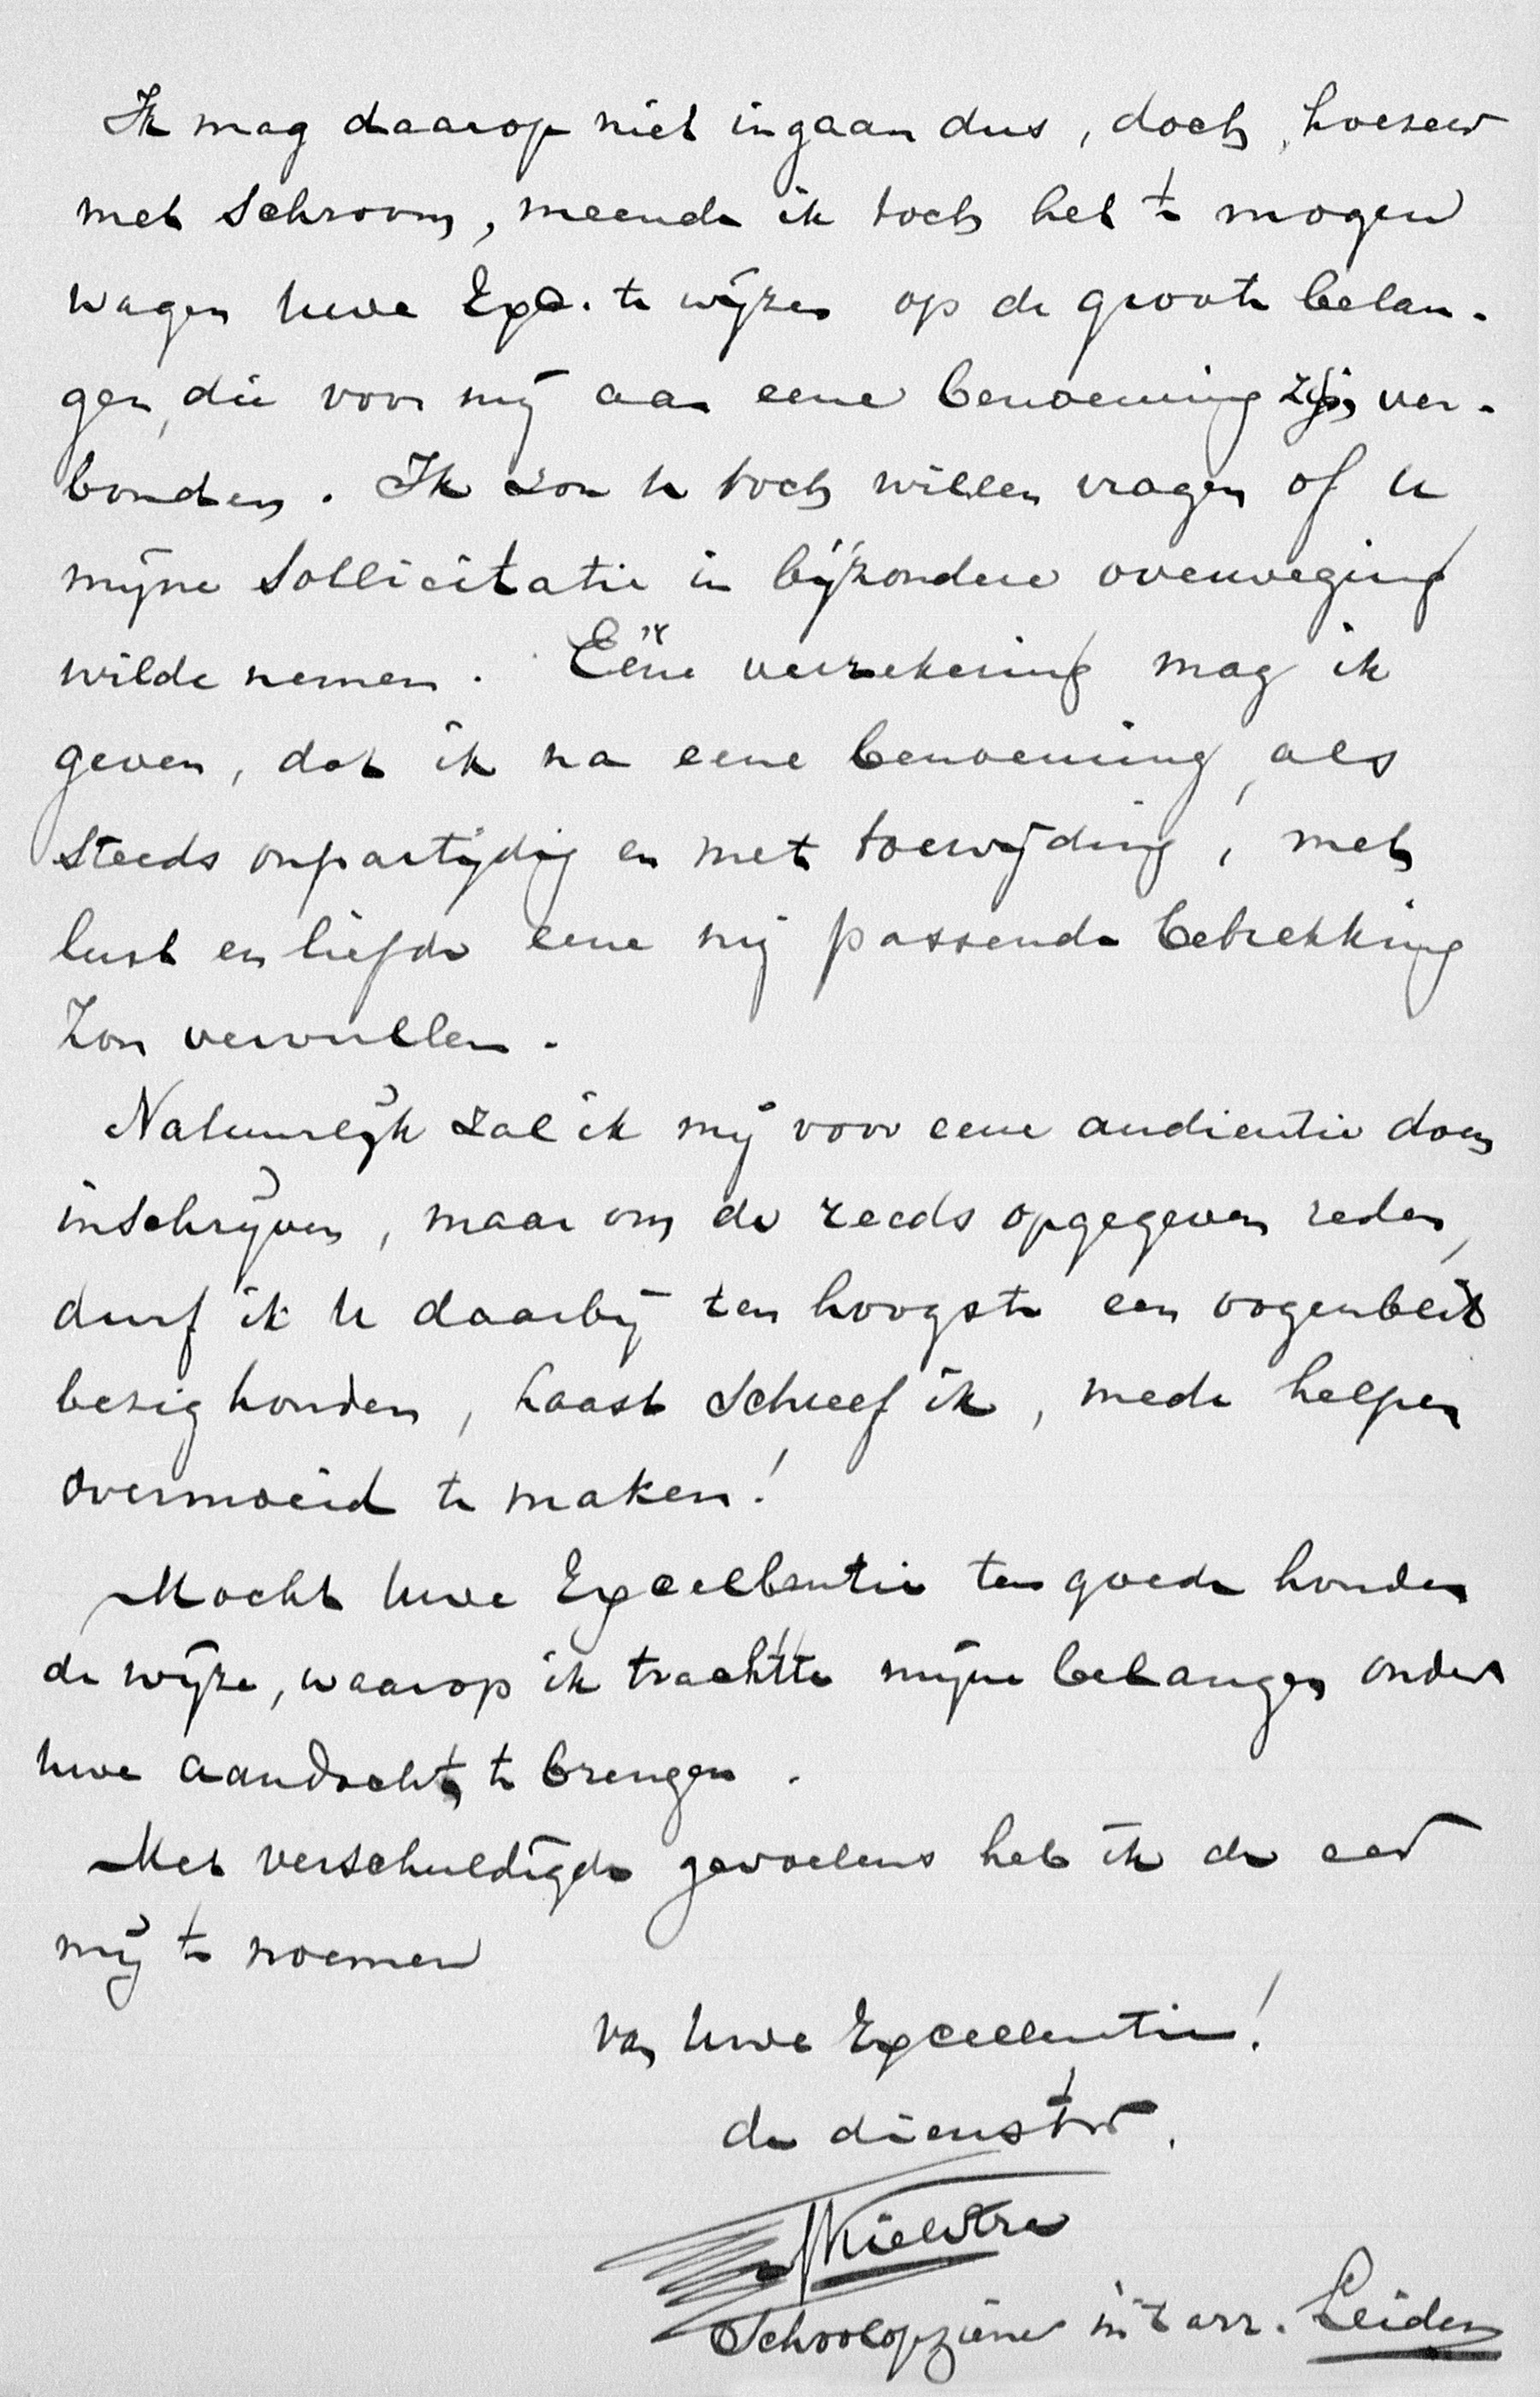 Ik mag daarop niet ingaan dus, doch, hoezeer
met schroom, meende ik toch het te mogen
wagen Uwe Exc. te wijzen op de groote belan-
gen, die voor mij aan eene benoeming zijn ver-
bonden. Ik zou U toch willen vragen of U
mijne sollicitatie in bijzondere overweging
wilde nemen. Eéne verzekering mag ik
geven, dat ik na eene benoeming, als
steeds onpartijdig en met toewijding, met
lust en liefde eene mij passende betrekking
zou vervullen.
Natuurlijk zal ik mij voor eene audientie doen
inschrijven, maar om de reeds opgegeven reden,
durf ik U daarbij ten hoogste een oogenblik
bezig houden, haast schreef ik, mede helpen
overmoeid te maken!
Mocht Uwe Excellentie ten goede houden
de wijze, waarop ik trachtte mijne belangen onder
Uwe aandacht te brengen.
Met verschuldigde gevoelens heb ik de eer
mij te noemen
van Uwe Excellentie!
de dienstw.
Schoolopziener in 't arr. Leiden